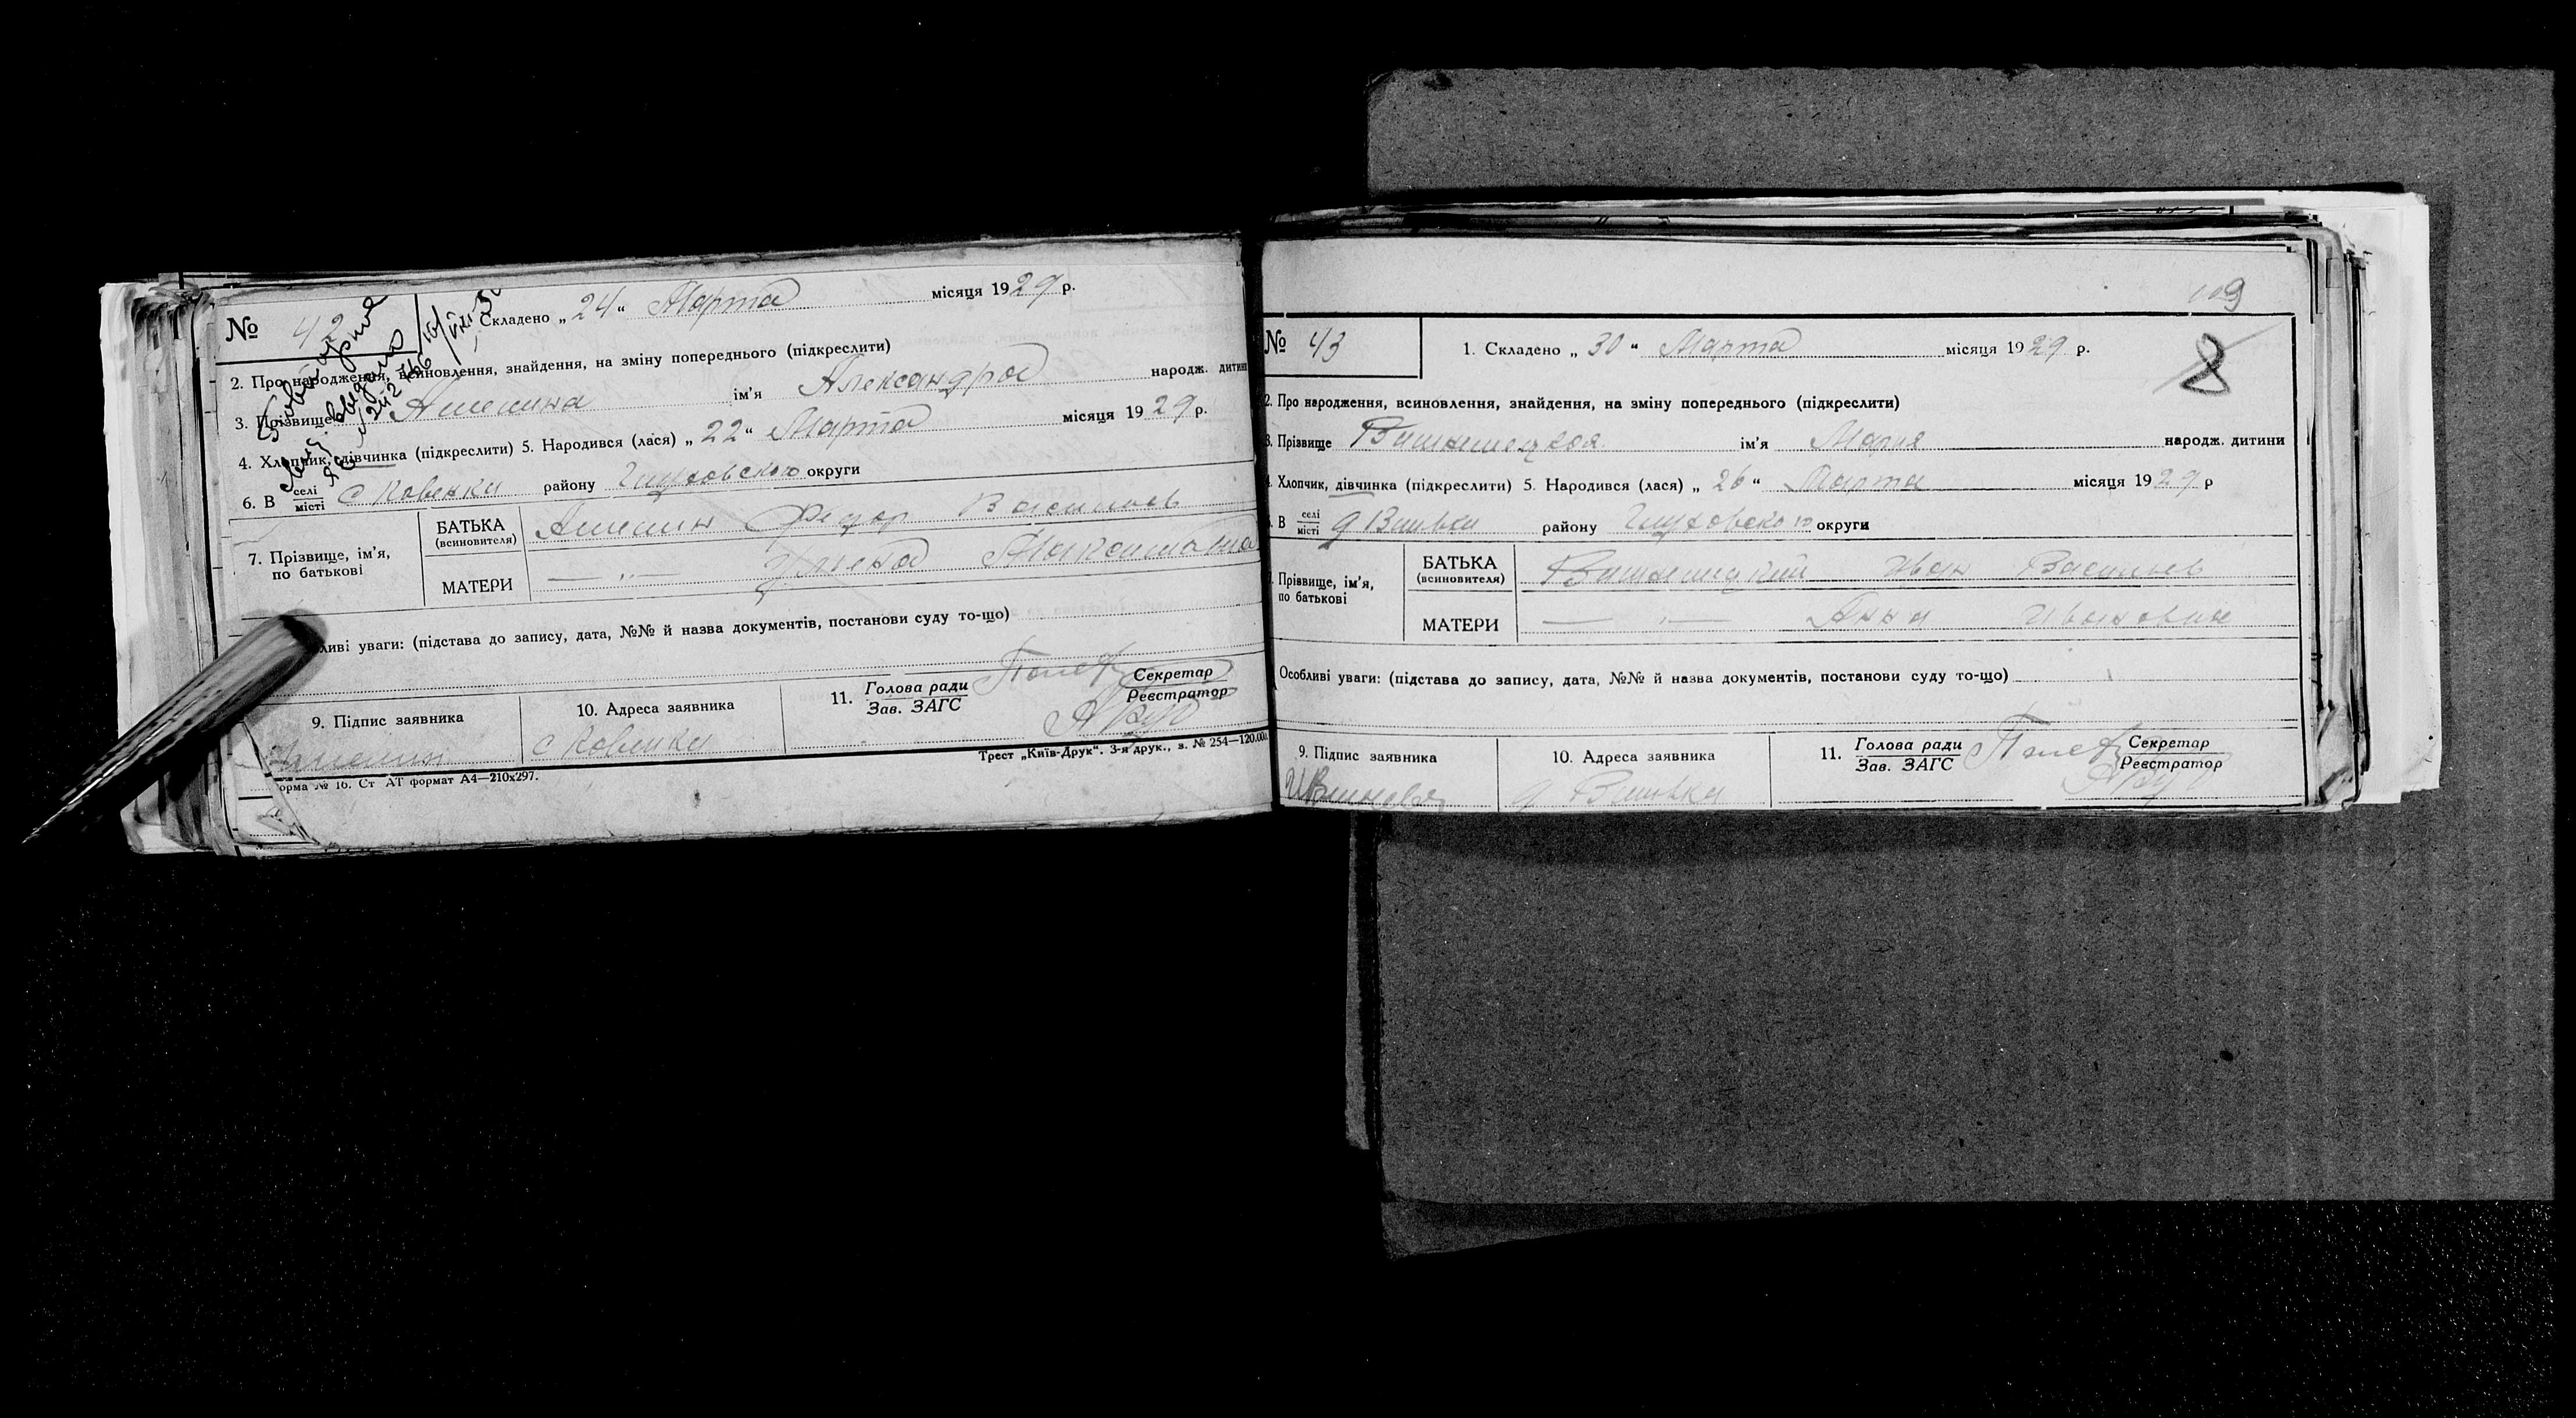 № 42
Складено „ 24 “ Марта місяця 1929 р.
2. Про народження, всиновлення, знайдення, на зміну попереднього (підкреслити)
3. Прізвище Алешина ім'я Александра народж. дитини
4. Хлопчик, дівчинка (підкреслити) 5. Народився (лася) „ 22 “ Марта місяця 1929 р.
6. В селі місті с Ковенки району Глуховского округи
7. Прізвище, ім'я, по батькові
БАТЬКА (всиновителя) Алешин Федор Васильев
МАТЕРИ — „ — Ульена Максимовна
ливі уваги: (підстава до запису, дата, №№ й назва документів, постанови суду то-що)
9. Підпис заявника Алешин
10. Адреса заявника с Ковенки
11. Голова ради Зав. ЗАГС
Секретар Реєстратор
орма № 16. Ст АТ формат А4—210х297.
Трест „Київ-Друк“. 3-я друк., з. № 254—120.00
109
8
№ 43
1. Складено „ 30 “ Марта місяця 1929 р.
2. Про народження, всиновлення, знайдення, на зміну попереднього (підкреслити)
3. Прізвище ім'я Мария народж. дитини
Хлопчик, дівчинка (підкреслити) 5. Народився (лася) „ 26 “ Марта місяця 1929 р
В селі місті району Глуховского округи
Прізвище, ім'я, по батькові
БАТЬКА (всиновителя) Иван Васильев
МАТЕРИ — „ — Анна Ивановна
Особливі уваги: (підстава до запису, дата, №№ й назва документів, постанови суду то-що)
9. Підпис заявника
10. Адреса заявника
11. Голова ради Зав. ЗАГС
Секретар Реєстратор